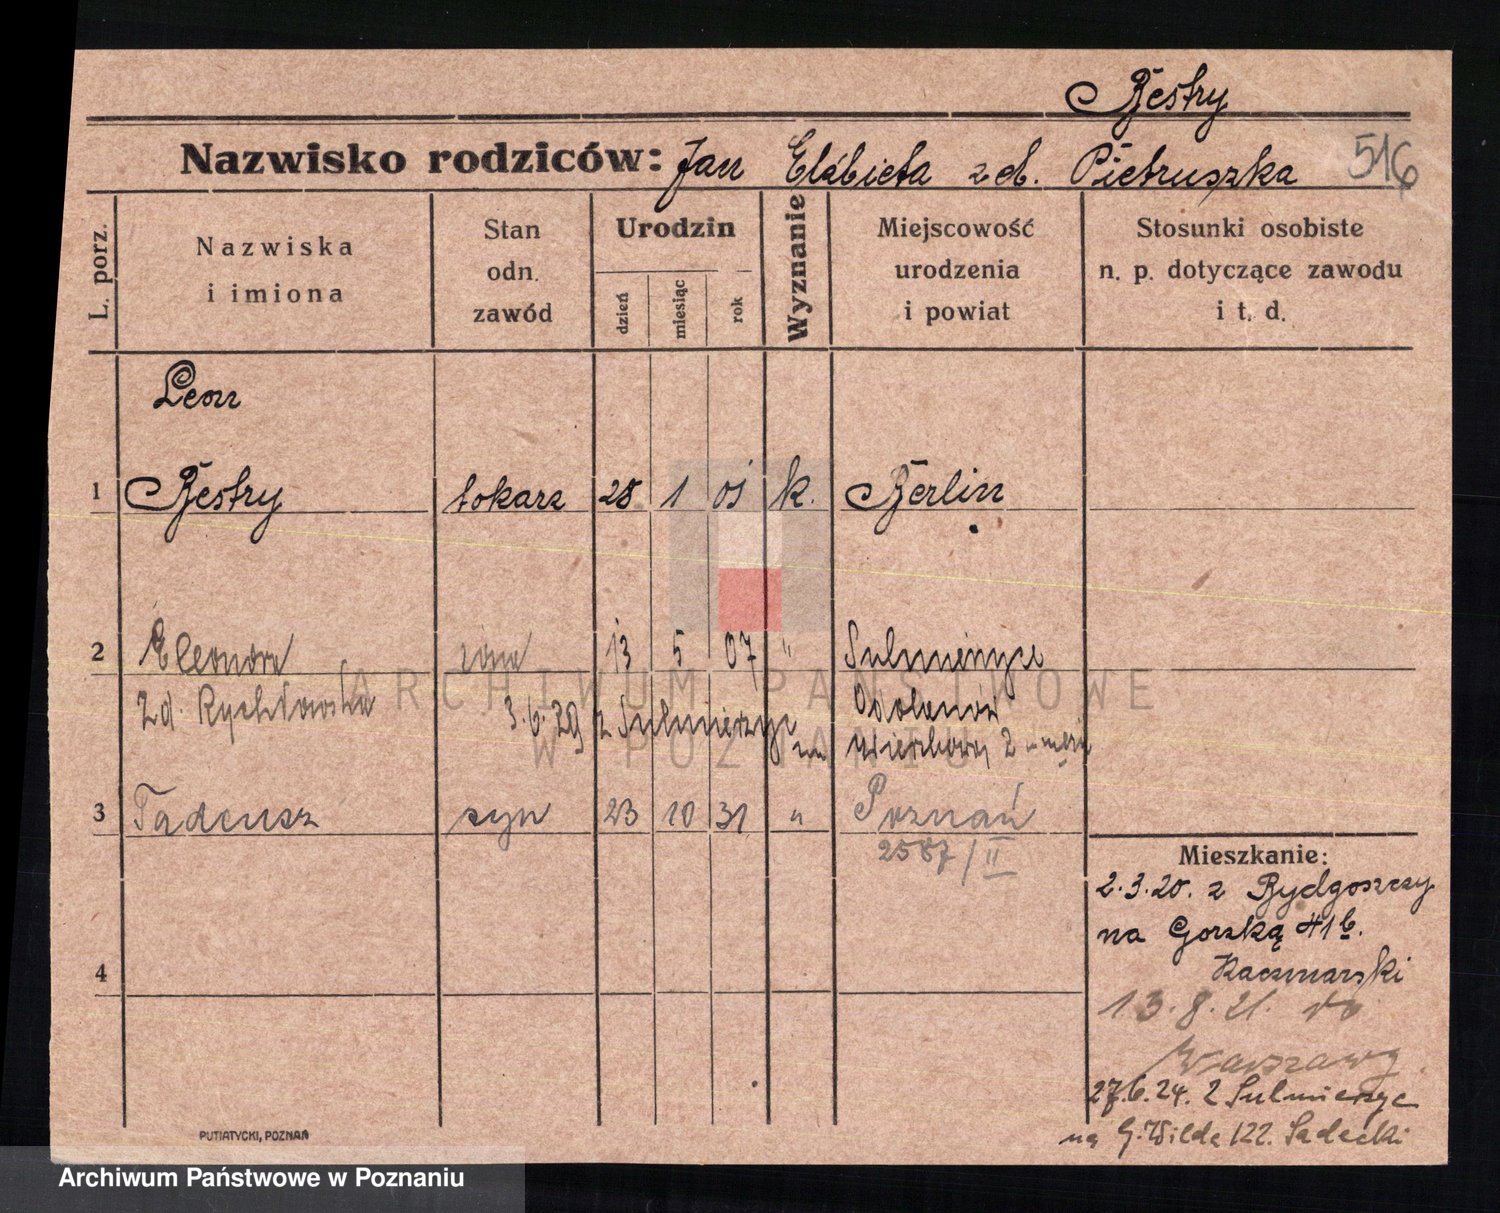 Bestry
Nazwisko rodziców: Jan Elżbieta zd. Pietruszka 516
L. porz.
Nazwiska i imiona
Stan odn. zawód
Urodzin
dzień miesiąc rok
Wyznanie
Miejscowość urodzenia i powiat
Stosunki osobiste n. p. dotyczące zawodu i t. d.
Leon
1 Bestry tokarz 28 1 05 k. Berlin
2 Eleonora żona 13 5 07 " Sulmierzyce
zd. Rychłowska 3.6.29 z Sulmierzyc Odolanów
3 Tadeusz syn 23 10 31 " Poznań
2587/II
Mieszkanie:
2.3.20. z Bydgoszczy
na Gorską 11b.
Kaczmarski
4
13.8.21. do
Warszawy
27.6.24. z Sulmierzyc
na G. Wilda 122. Sadecki
PUTIATYCKI, POZNAŃ
ARCHIWUM PAŃSTWOWE
W POZNANIU
Archiwum Państwowe w Poznaniu